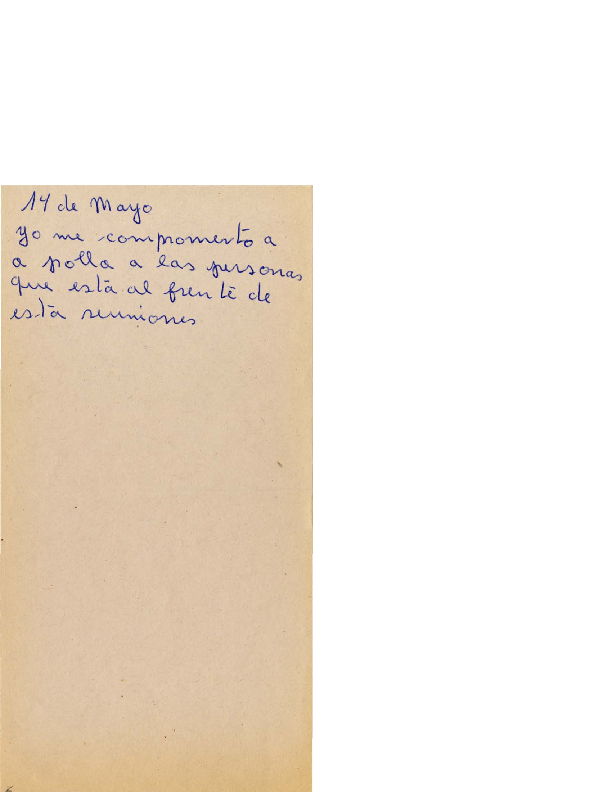 14 de Mayo
yo me compromento a
a polla a las personas
que está al frente de
está reuniones